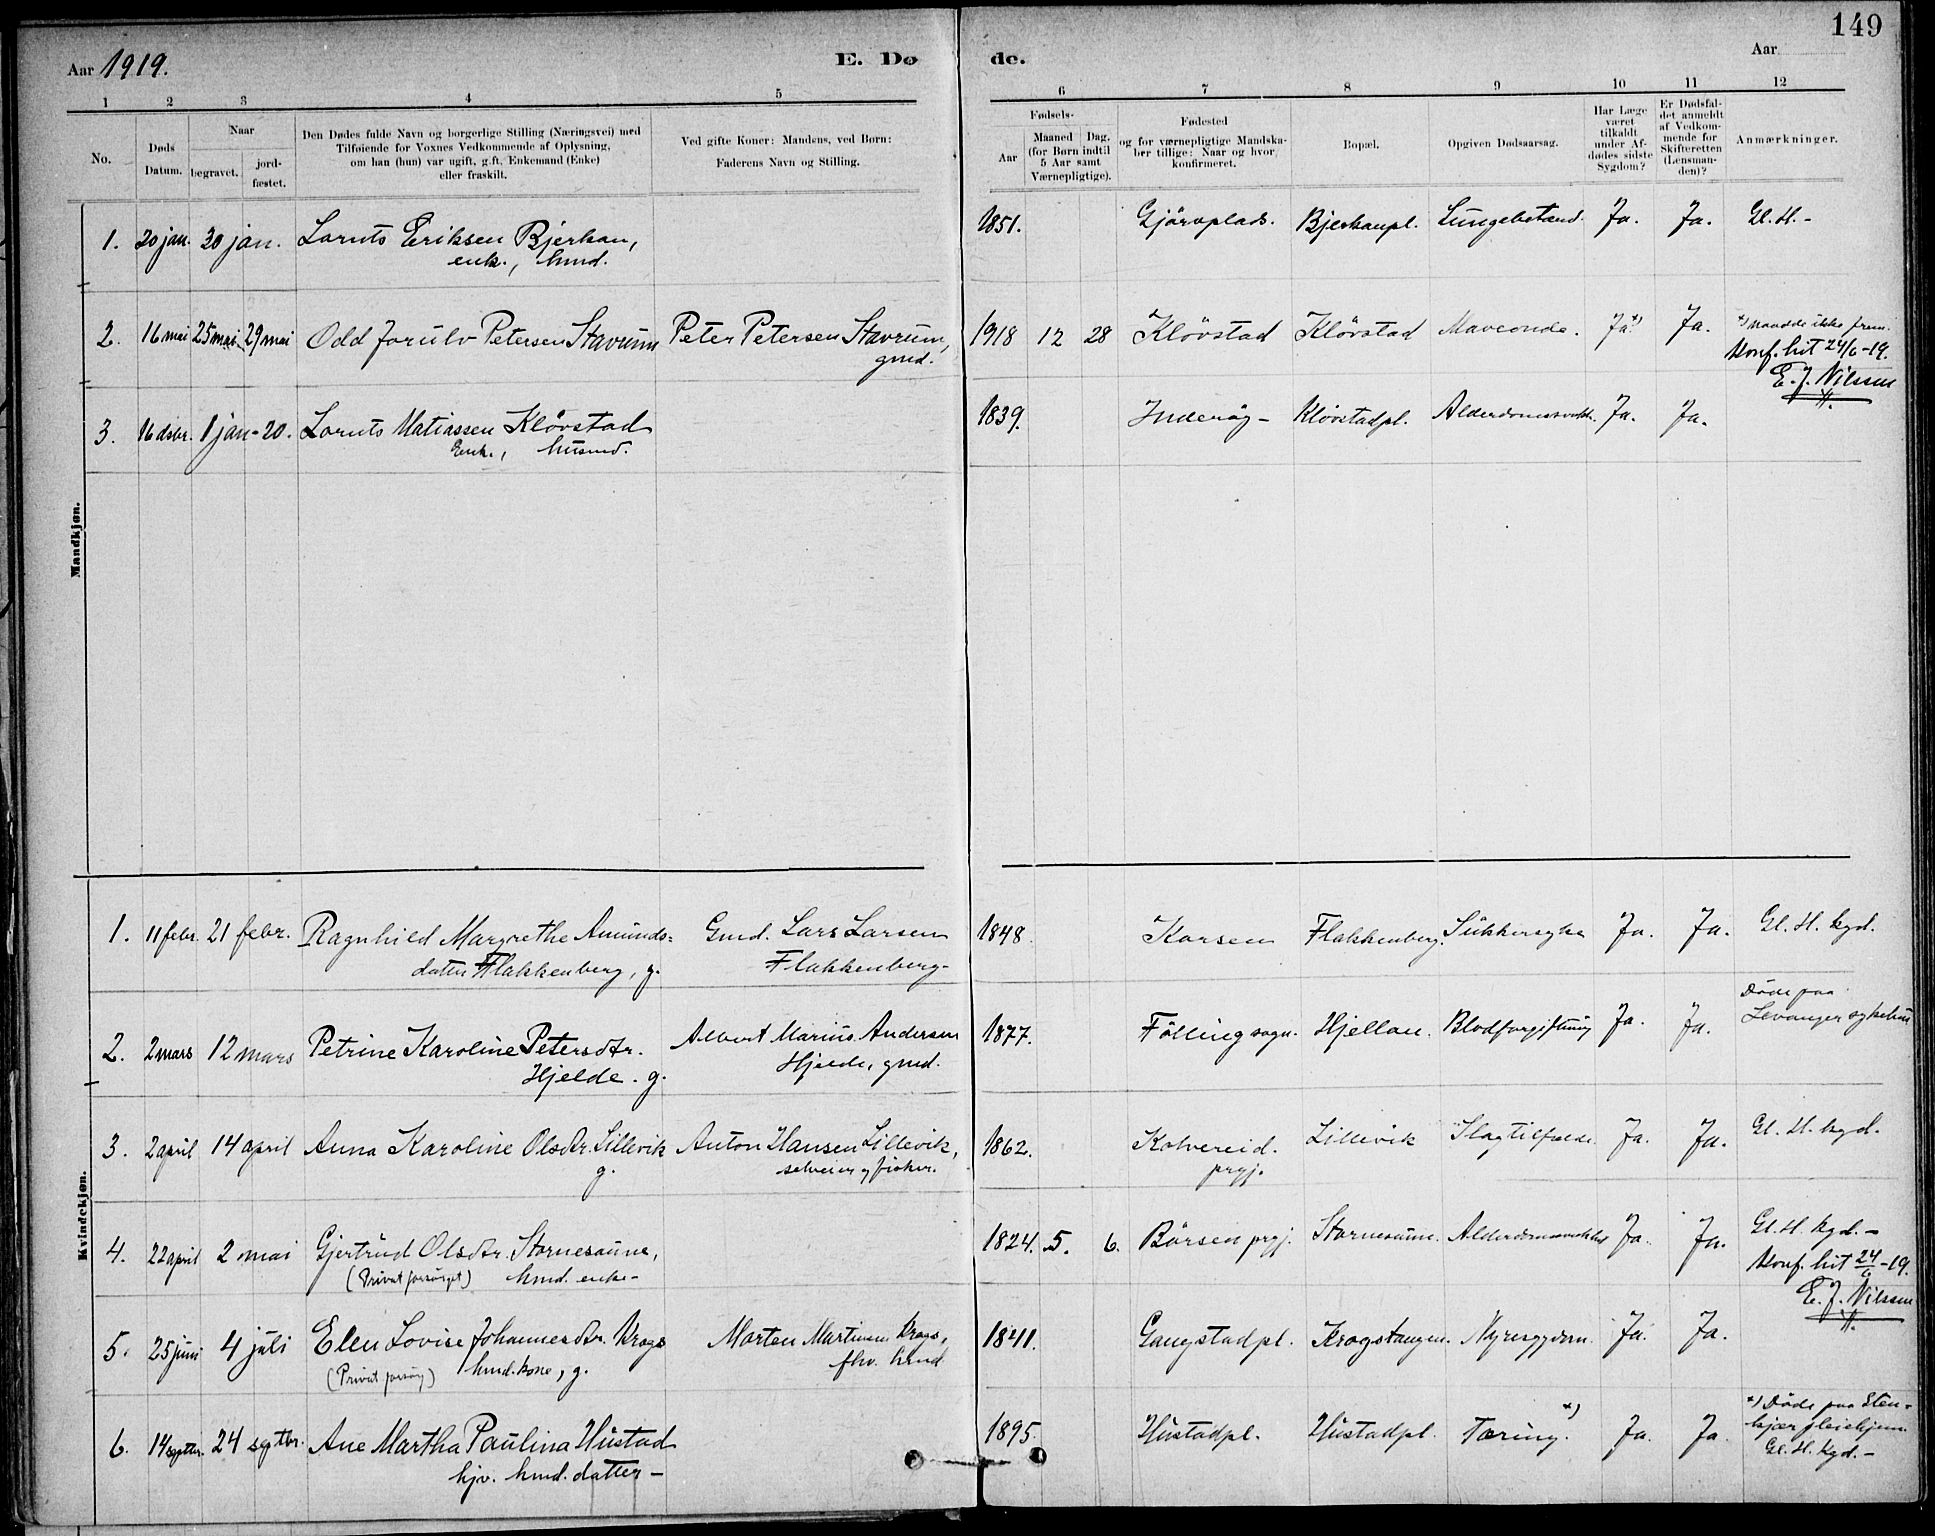 149
Aar 1919.
E. Dø
de.
Aar
1 2 3 4 5
6 7 8 9 10 11 12
No.
Døds Datum.
Naar
begravet.
jord-
fæstet.
Den Dødes fulde Navn og borgerlige Stilling (Næringsvei) med
Tilføiende for Voxnes Vedkommende af Oplysning,
om han (hun) var ugift, gift, Enkemand (Enke)
eller fraskilt.
Ved gifte Koner: Mandens, ved Børn:
Faderens Navn og Stilling.
Fødsels-
Aar
Maaned Dag.
(for Børn indtil
5 Aar samt
Værnepligtige).
Fødested
og for værnepligtige Mandska-
ber tillige: Naar og hvor
konfirmeret.
Bopæl.
Opgiven Dødsaarsag.
Har Læge
været
tilkaldt
under Af-
dødes sidste
Sygdom?
Er Dødsfal-
det anmeldt
af Vedkom-
mende for
Skifteretten
(Lensman-
den)?
Anmærkninger.
Mandkjøn.
1. 20 jan. 30 jan. Lornts Eriksen Bjerkan, 1851. Gjörvplads. Bjerkanpl. Lungebetænd. Ja. Ja. Gl. H. -
enk., hmd.
2. 16 mai 25 mai 29 mai Odd Jorulv Petersen Stavrum Peter Petersen Stavrum, 1918 12 28 Klövstad Klövstad Maveonde. Ja *) Ja. *) naadde ikke frem.
gmd. Konf. hit 24/6-19.
E. J. Nilssen
3. 16 dsbr. 1 jan - 20. Lornts Matiassen Klövstad 1839. Inderöy - Klövstadpl. Alderdomssvakh. Ja. Ja.
Enk., husmd.
Kvindekjøn.
1. 11 febr. 21 febr. Ragnhild Margrethe Amunds= Gmd. Lars Larsen 1848. Korsen Flakkenberg. Sukkersyke Ja. Ja. Gl. H. kgd.
datter Flakkenberg, g. Flakkenberg-
2. 2 mars 12 mars Petrine Karoline Petersdtr. Albert Marius Andersen 1877. Fölling sogn. Hjellan. Blodforgiftning Ja. Ja. Döde paa
Hjelde. g. Hjelde, gmd. Levanger sykehus
3. 2 april 14 april Anna Karoline Olsdtr. Lillevik Anton Hansen Lillevik, 1862. Kolvereid. Lillevik Slagtilfælde. Ja. Ja. Gl. H. kgd.
g. selveier og fisker. prgj.
4. 22 april 2 mai Gjertrud Olsdtr. Stornesaune, 1824. 5. 6. Börsen prgj. Stornesaune. Alderdomssvakhet Ja. Ja. Gl. H. kgd. -
(Privat forsörget) hmd. enke- Konf. hit 24/6-19.
E. J. Nilssen
5. 25 juni 4 juli Elen Lovise Johannesdtr. Krogs Morten Martinsen Krogs, 1841. Gangstadpl. Krogstangen. Nyresygdom. Ja. Ja.
(Privat forsörg) hmd. kone, g. fhv. hmd
6. 14 septbr. 24 septbr. Ane Martha Paulina Hustad 1895. Hustadpl. Hustadpl. Tæring. *) Ja. Ja. *) Döde paa Sten-
hjv. hmd. datter - kjær pleiehjem.
Gl. H. kgd. -